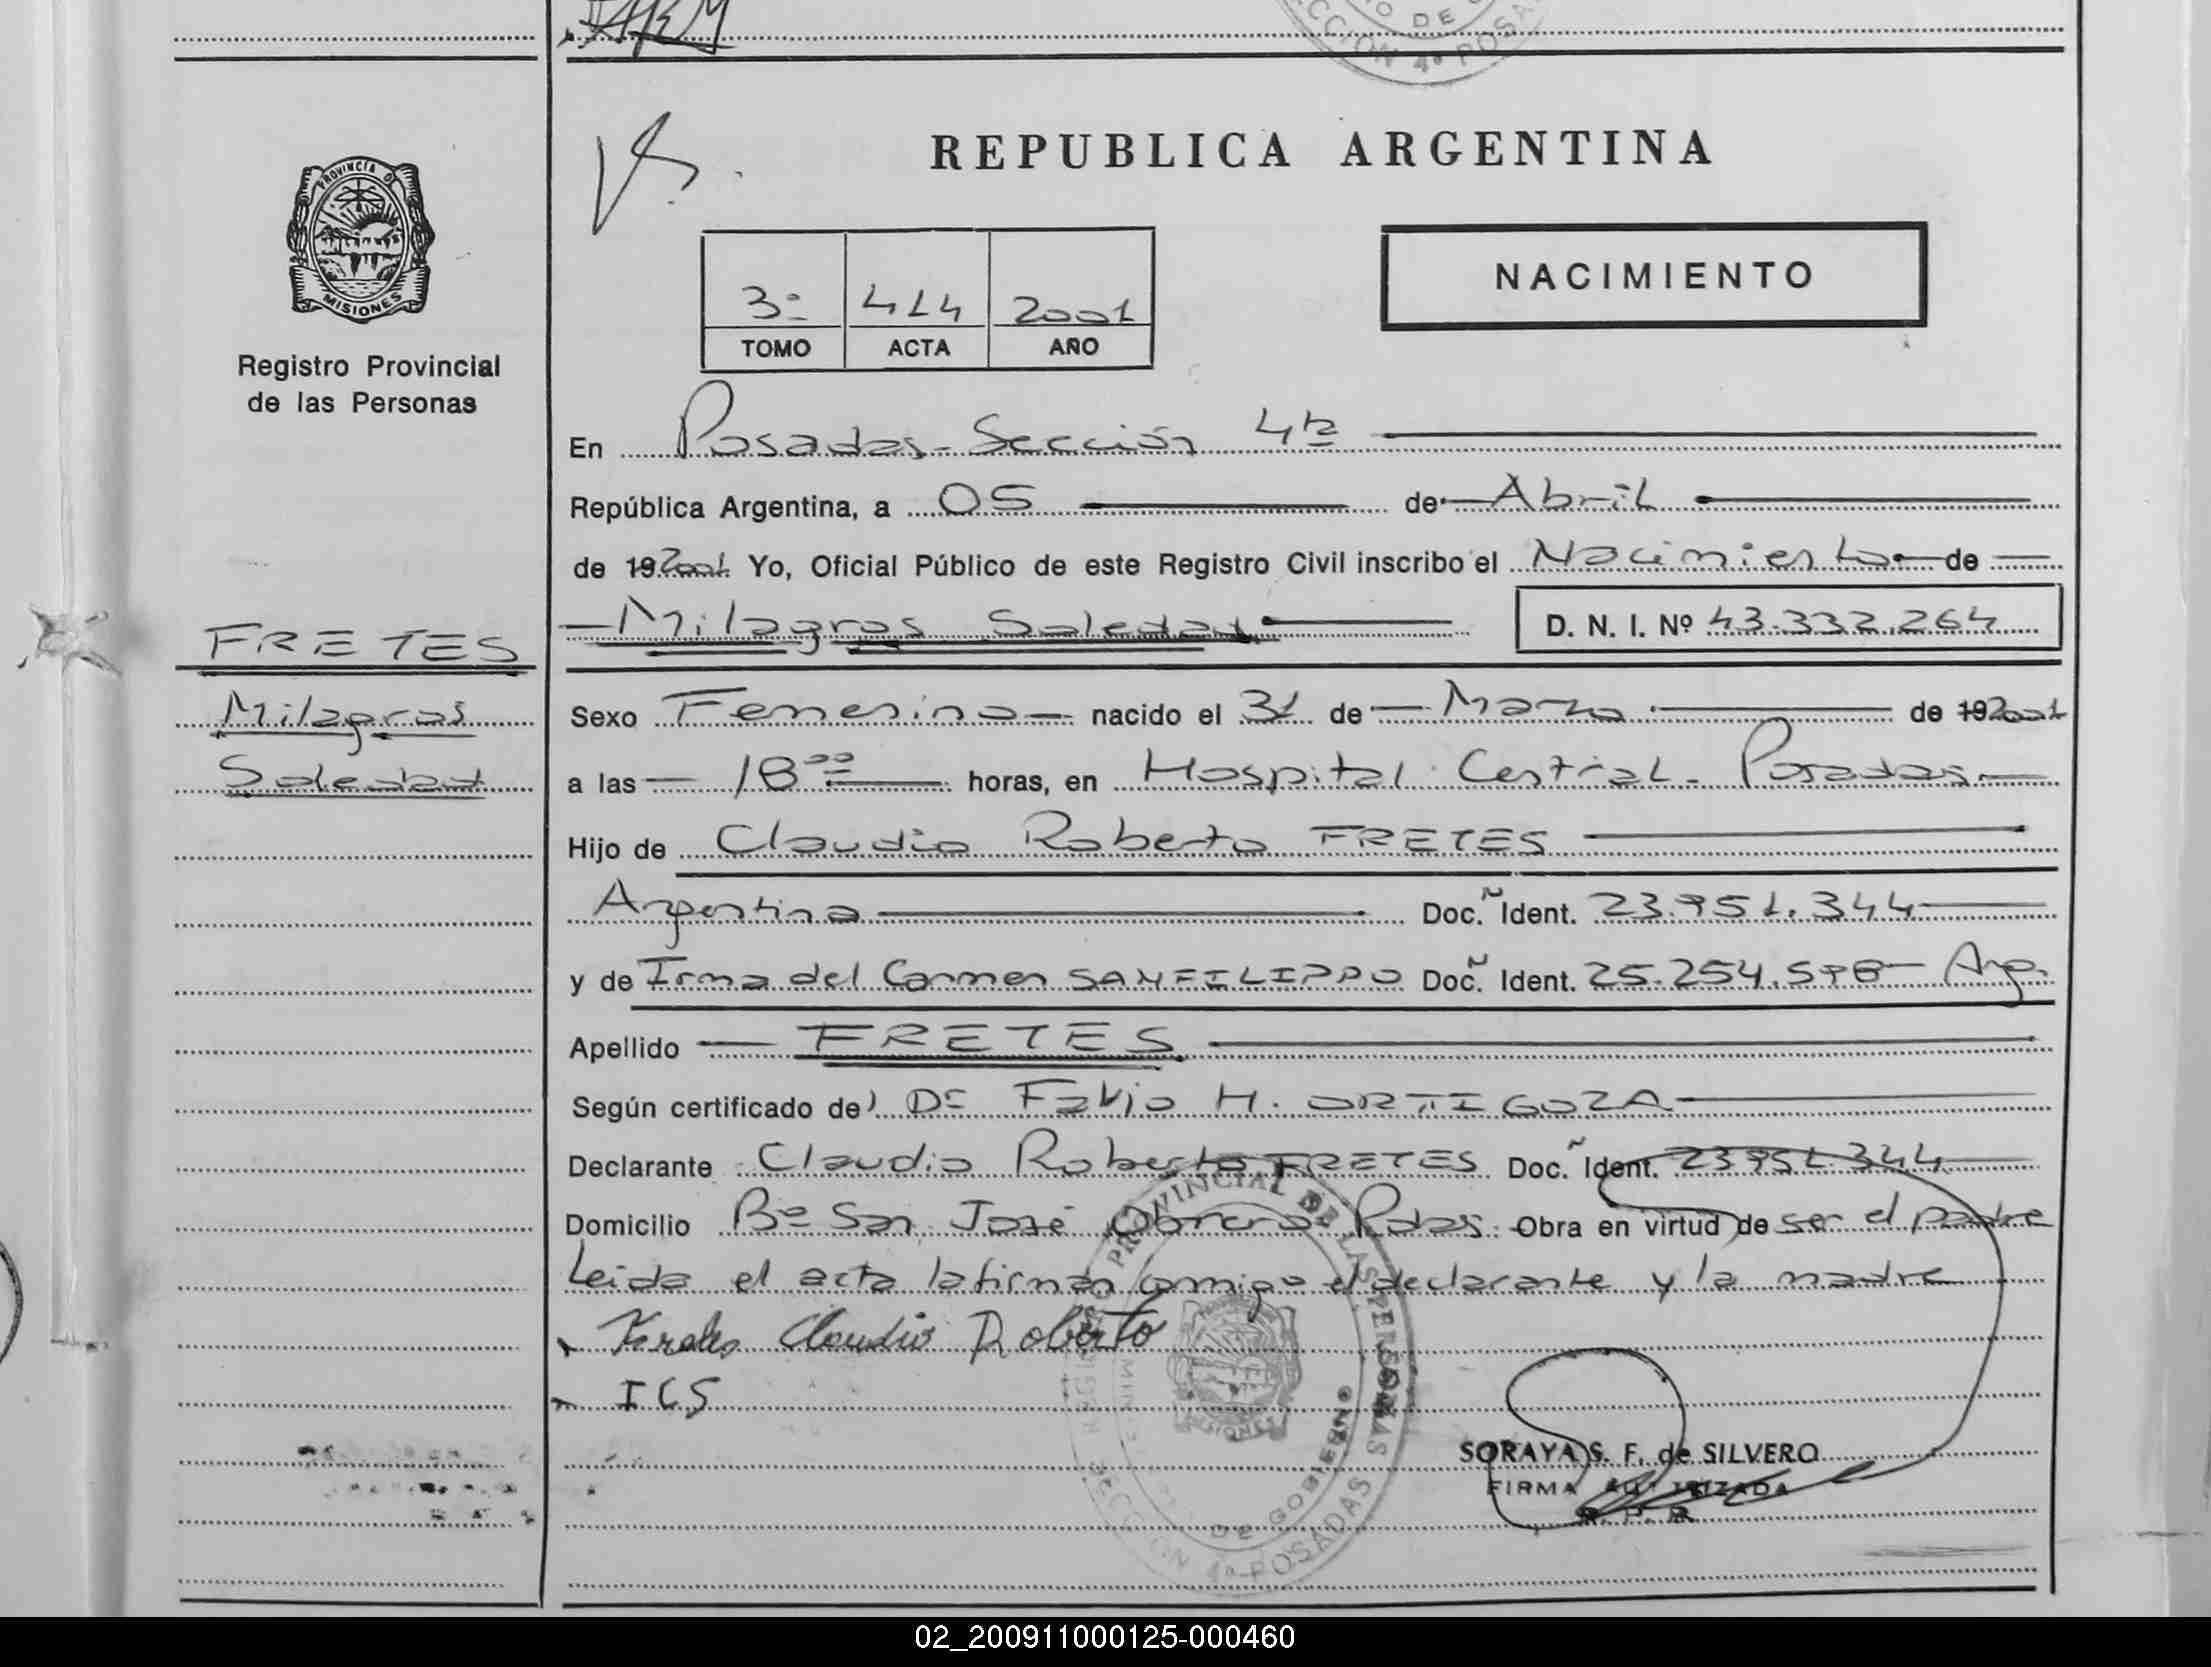 CCION 4º POSA
PROVINCIA D
MISIONES
REPUBLICA ARGENTINA
NACIMIENTO
3º 414 2001
TOMO ACTA AÑO
Registro Provincial
de las Personas
En Posadas - Sección 4ta
República Argentina, a 05 de Abril
de 192001 Yo, Oficial Público de este Registro Civil inscribo el Nacimiento de
Milagros Soledad D. N. I. Nº 43.332.264
FRETES
Milagros
Soledad
Sexo Femenino nacido el 31 de Marzo de 192001
a las 18 00 horas, en Hospital Central - Posadas
Hijo de Claudio Roberto FRETES
Argentina Doc. Ident. 23.951.344
y de Irma del Carmen SANFILIPPO Doc. Ident. 25.254.598 - Arg.
Apellido FRETES
Según certificado de Dr Favio H. ORTIGOZA
Declarante Claudio Roberto FRETES Doc. Ident. 23951344
Domicilio Bº San José Obrero Pdas. Obra en virtud de ser el padre
Leida el acta la firman conmigo el declarante y la madre
Claudio Roberto
I C S
PROVINCIAL DE LAS PERSONAS
DE GOBIERNO
MISIONES
SECCION 4º POSADAS
SORAYA S. F. de SILVERO
FIRMA AUTORIZADA
02_200911000125-000460